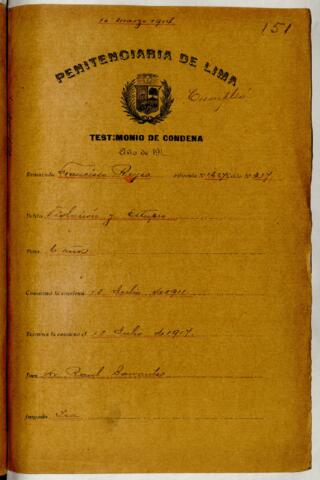 151
PENITENCIARIA DE LIMA
Cumplió
TESTIMONIO DE CONDENA
Año de 191
Rematado Francisco Reyes
Delito Violación y estupro
Pena 6 años
Comienza la condena 12 Julio de 1911
Termina la condena el 12 Julio de 1917
Juez Dr. Raul
Juzgado